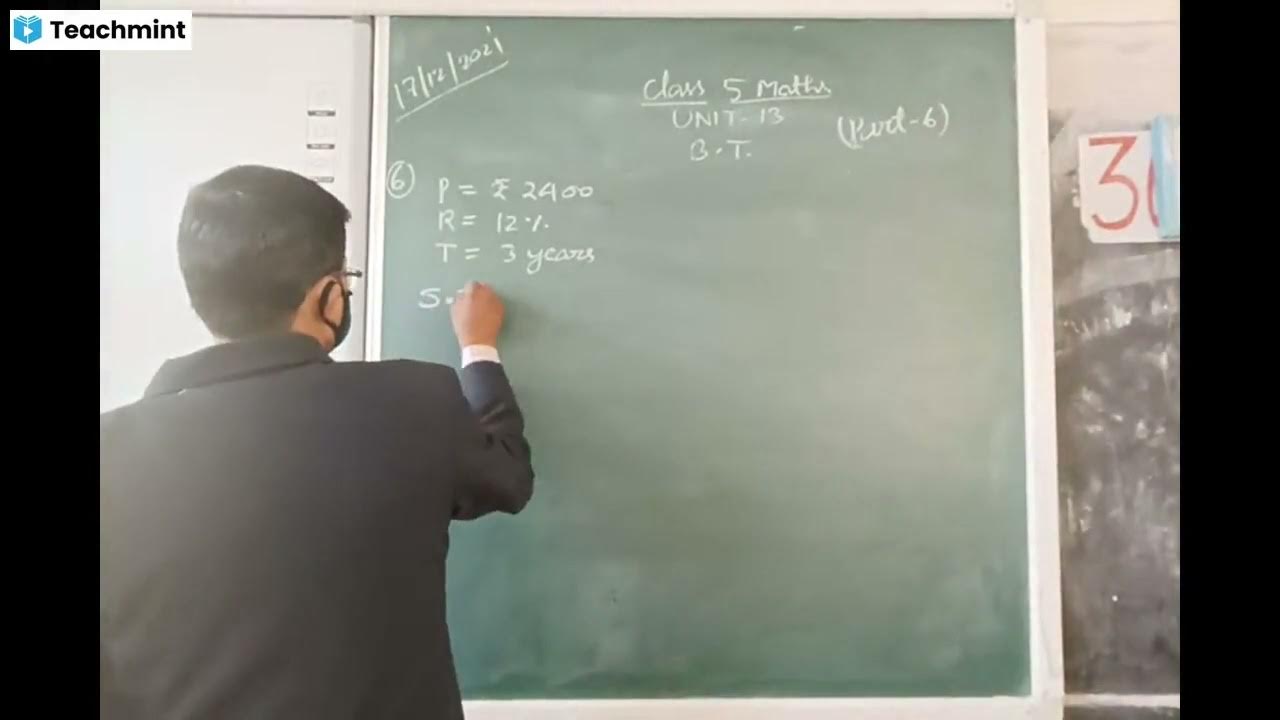 Teachmint
17/12/2021
Class 5 Maths
UNIT-13
B.T.
(Part-6)
6
P = ₹ 2400
R = 12%
T = 3 years
S.
3